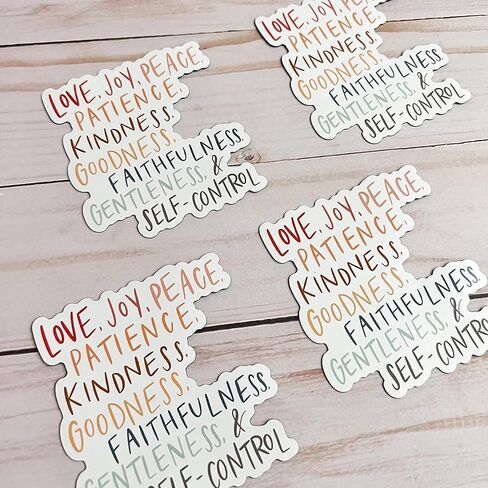 LOVE, JOY, PEACE,
PATIENCE,
KINDNESS,
GOODNESS,
FAITHFULNESS,
GENTLENESS, &
SELF-CONTROL
LOVE, JOY,
PATIENCE,
KINDNESS,
GOODNESS,
FAITHFULNESS,
GENTLENESS, &
SELF-CONTROL
LOVE, JOY, PEACE,
PATIENCE,
KINDNESS,
GOODNESS,
FAITHFULNESS,
GENTLENESS, &
SELF-CONTROL
LOVE, JOY, PEACE,
PATIENCE,
KINDNESS,
GOODNESS,
FAITHFULNESS,
GENTLENESS, &
SELF-CONTRO